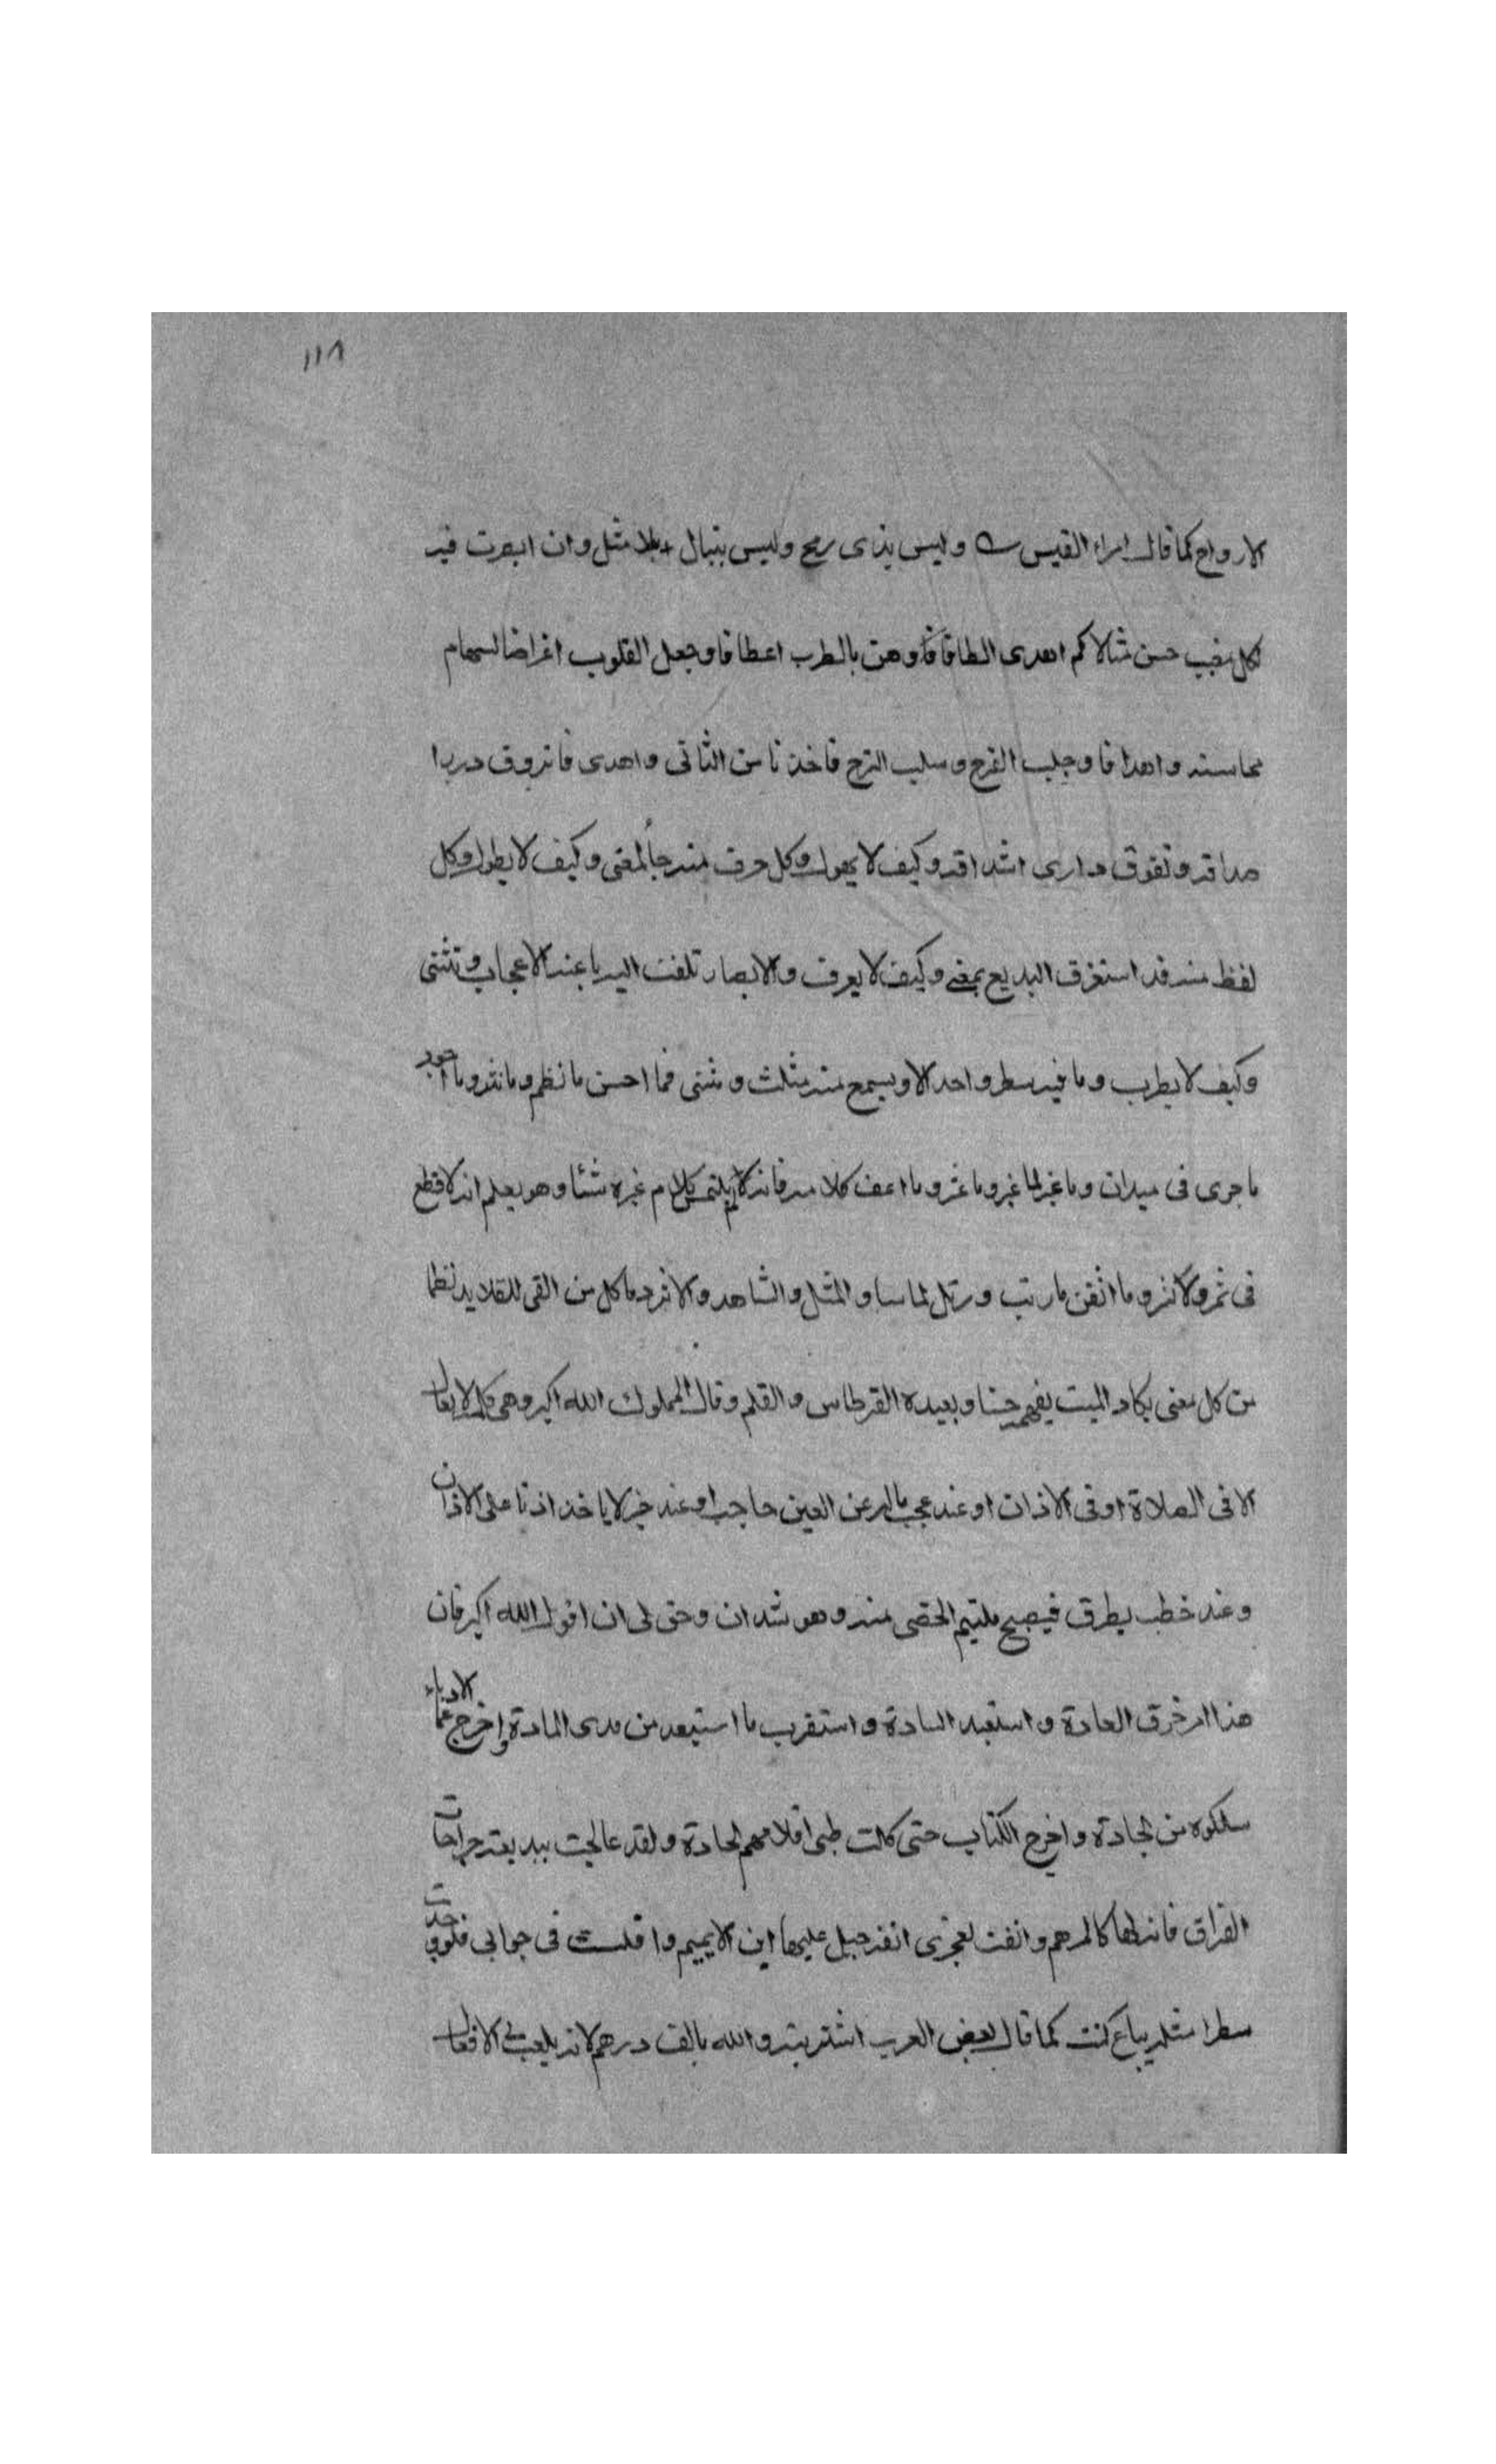 ١١٨
الارواح كما قال امراء القيس وليس بذى رمح وليس بنبال بلا مثل وان ابصرت فيه
لكل مغيب حسن مثالا كم اهدى الطافا وهز بالطرب اعطافا وجعل القلوب اغراضا لسهام
محاسنه واهدافا وجلب الفرح وسلب الترح فاخذنا من الثانى واهدى فا تروق
وتفوق دارى اشداقه وكيف لا يهول وكل حرف منه جا لمعنى وكيف لا يطول وكل
لفظ منه قد استغرق البديع بمعنى وكيف لا يعرف والابصار تلفت اليه باعنه الاعجاب وتثنى
وكيف لا يطرب وما فيه سطر واحد الا ويسمع منه مثلث ومثنى فما احسن ما نظم وما نثر وما اجود
ما جرى فى ميدان وما غبر لما غبر وما عثر وما اعف كلامه فانه لا يلم بكلام غيره شئا وهو يعلم انه لا قطع
فى ثمر ولا نثر وما اتقن ما رتب ورتل لما ساو المثل والشاهد والا نرد ما كل من القى للقلايد نظما
من كل معنى يكاد الميت يفهمه حسنا ويعبده القرطاس والقلم وقال المملوك الله اكبر وهى كلمة لا يقال
الا فى الصلاة او فى الاذان او عند عجب ماله عن العين حاجب او عند خبر لا ياخذ اذنا على الاذان
وعند خطب يطرق فيصبح ملتيم الحصى منه وهو شذان وحق لى ان اقول الله اكبر فان
هذا امر خرق العادة واستعبد السادة واستقرب ما استبعد من مدى المادة واخرج الادباء عما
سلكوه من الجادة واخرج الكتاب حتى كلت ظبى اقلامهم الحادة ولقد عالجت ببديعته جراحات
الفراق فانه لها كالمرهم وانفت لعجزى انفة جبل عليها ابن الايهم واقلت فى جوابى فلو وجدت
سطرا مثله يباع كنت كما قال بعض العرب اشتريته والله بالف درهم لانه يلعب